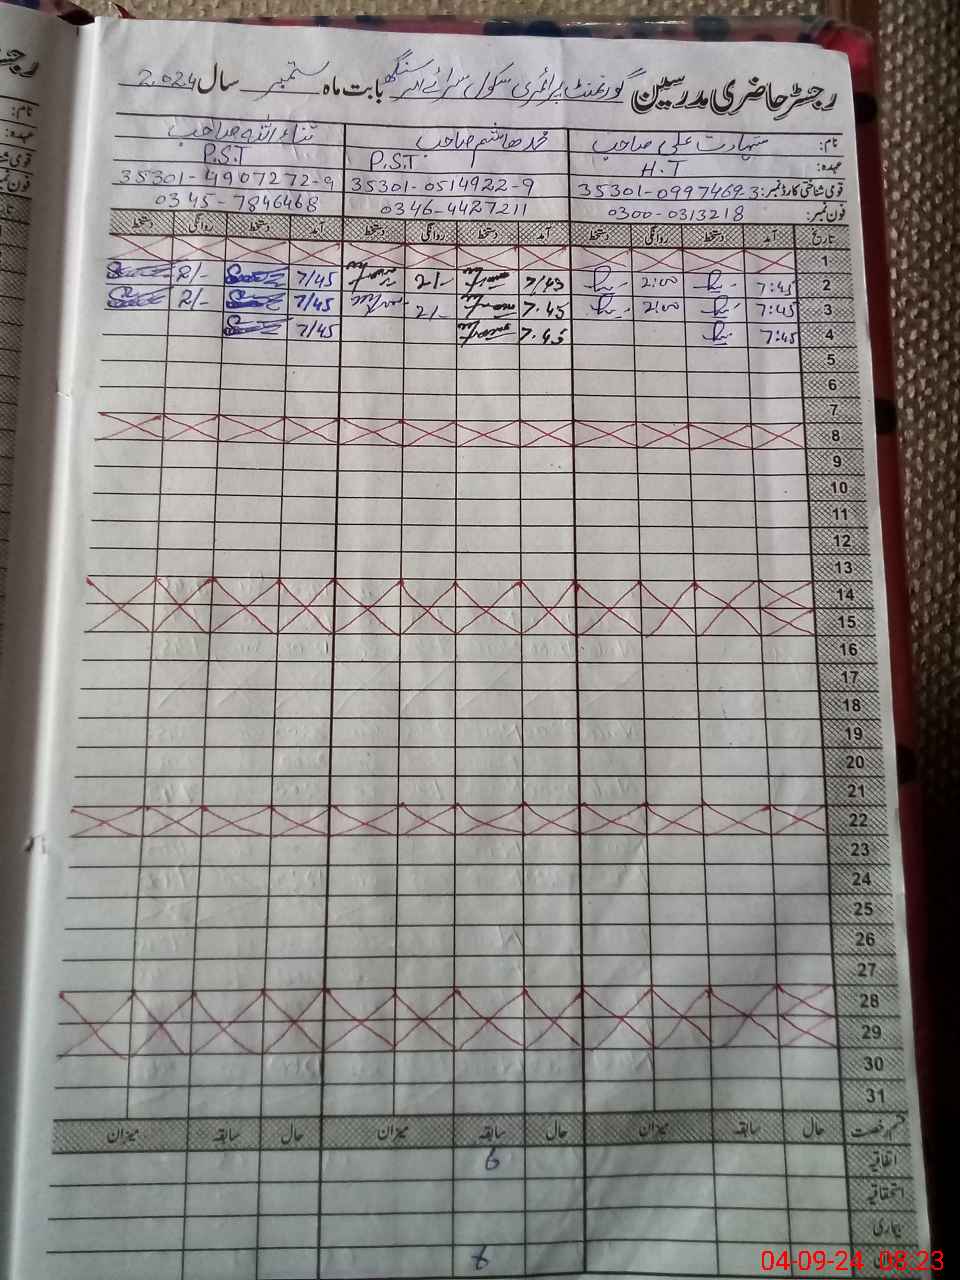 رجسٹر حاضری مدرسین گورنمنٹ پرائمری سکول سرائے امر سنگھ بابت ماہ ستمبر سال 2024
نام: شہادت علی صاحب محمد ھاشم صاحب ثناء اللہ صاحب
عہدہ: H.T P.S.T P.S.T
قومی شناختی کارڈ نمبر: 35301-0997469-3 35301-0514922-9 35301-4907272-9
فون نمبر: 0300-0313218 0346-4427211 0345-7846468
تاریخ آمد دستخط روانگی دستخط آمد دستخط روانگی دستخط آمد دستخط روانگی دستخط
1
2 7:45 2:00 7/45 2/- 7/45 2/-
3 7:45 2:00 7.45 2/- 7/45 2/-
4 7:45 7.45 7/45
5
6
7
8
9
10
11
12
13
14
15
16
17
18
19
20
21
22
23
24
25
26
27
28
29
30
31
قسم رخصت حال سابقہ میزان حال سابقہ میزان حال سابقہ میزان
اتفاقیہ 6
استحقاقیہ
بیماری
6
04-09-24 08:23